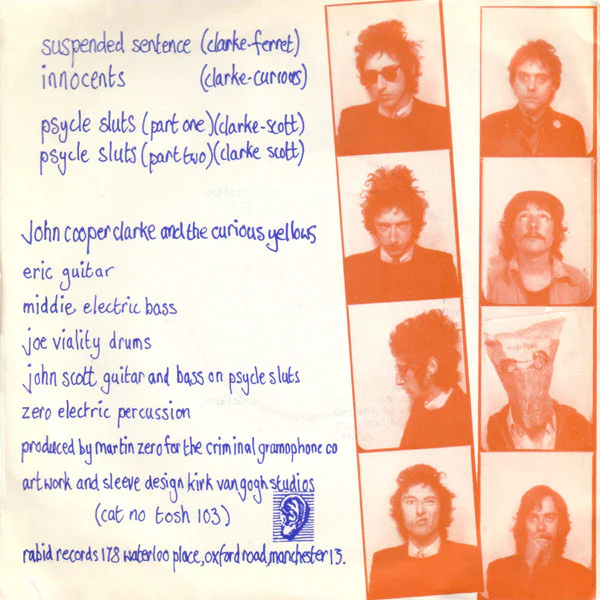 suspended sentence (clarke-ferret)
innocents (clarke-curious)
psycle sluts (part one)(clarke-scott)
psycle sluts (part two)(clarke scott)
John cooper clarke and the curious yellows
eric guitar
middie electric bass
joe viality drums
john scott guitar and bass on psycle sluts
zero electric percussion
produced by martin zero for the criminal gramophone co
artwork and sleeve design kirk van gogh studios
(cat no tosh 103)
rabid records 178 waterloo place, oxford road, manchester 13.